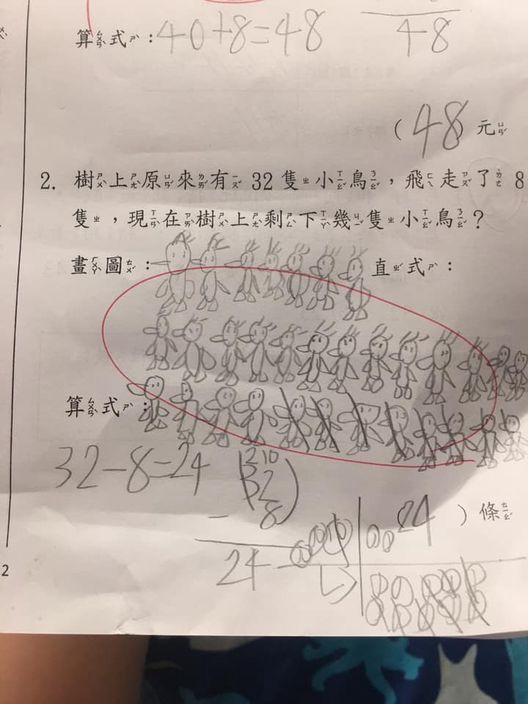 算式：40+8=48
48
(48元
2. 樹上原來有 32 隻小鳥，飛走了 8
隻，現在樹上剩下幾隻小鳥？
畫圖： 直式：
算式：
32-8=24
2 10
32
- 8
24
24 ) 條
2